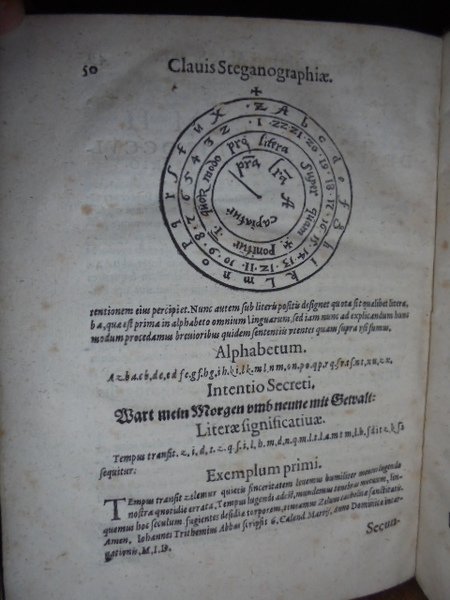 50 Clauis Steganographiæ.
✠
Z A b c d e f g h i k l m n o p q r s f u X
1 · 22 · 21 · 20 · 19 · 18 · 17 · 16 · 15 · 14 · 13 · 12 · 11 · 10 · 9 · 8 · 7 6 5 4 3 2
quot modo pro litera super quam ponitur
capiatur
tentionem eius percipiet. Nunc autem sub literis positis designet quota sit qualibet litera,
ba, qua est prima in alphabeto omnium linguarum, sed iam nunc ad explicandum hunc
modum procedamus breuioribus quidem sententiis vtentes quam supra vsi sumus.
Alphabetum.
A z. b a. c b. d c. e d. f e. g f. h g. i h. k i. l k. m l. n m. o n. p o. q p. r q. s r. t s. u t. x u. z x.
Intentio Secreti,
Wart mein Morgen vmb neune mit Gewalt:
Literæ significatiuæ.
Tempus transit. z. i. d. t. z. q. s. i. l. h. m. d. n. q. m. l. t. l. a. m t m. l. h. s d i t z. k. s a
sequitur:
Exemplum primi.
TEmpus transit zelemur quietis sinceritatem leuemus humiliter mentes lugendo
nostra quotidie errata, Tempus lugendi adest, mundemus tenebras mentium, lin-
quamus hoc seculum fugientes desidiæ torporem, teneamus Zelum catholicæ sanctitatis
Amen. Iohannes Trithemius Abbas scripsit 6. Calend. Martij, anno Dominicæ incar-
nationis, M. I. D.
Secun-